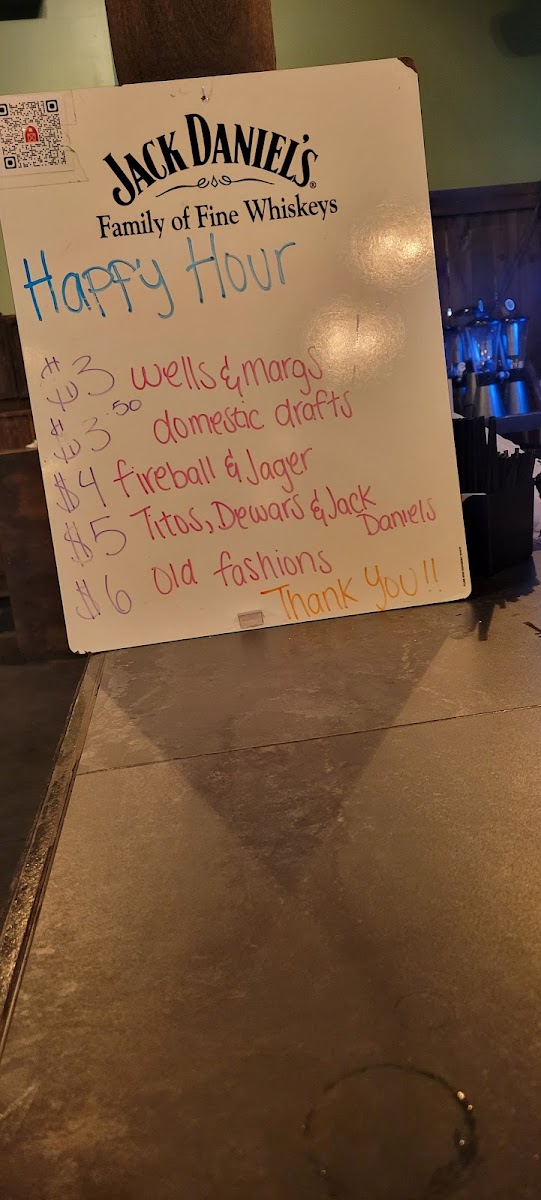 JACK DANIEL'S®
Family of Fine Whiskeys
Happy Hour
$3 wells & margs
$3.50 domestic drafts
$4 fireball & Jager
$5 Titos, Dewars & Jack
Daniels
$6 Old fashions
Thank You!!